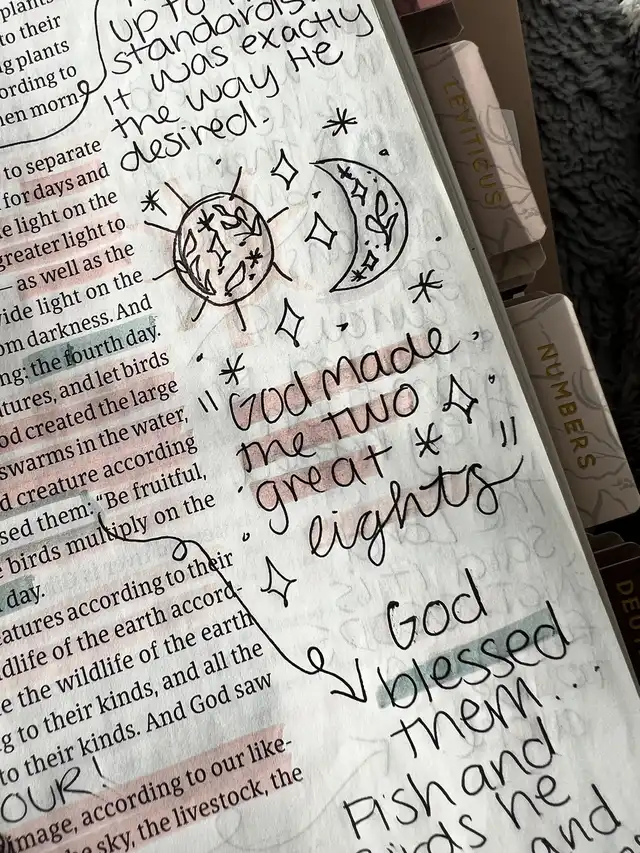 plants
to their
g plants
ording to
en morn-
to separate
for days and
e light on the
greater light to
— as well as the
vide light on the
om darkness. And
ng: the fourth day.
tures, and let birds
od created the large
swarms in the water,
d creature according
sed them: "Be fruitful,
e birds multiply on the
day.
eatures according to their
ldlife of the earth accord-
e the wildlife of the earth
g to their kinds, and all the
to their kinds. And God saw
OUR!
image, according to our like-
e sky, the livestock, the
up to
standards.
It was exactly
the way He
desired.
"God made
the two
great
lights"
God
blessed
them...
Fish and
Birds he
and
LEVITICUS
NUMBERS
DEU